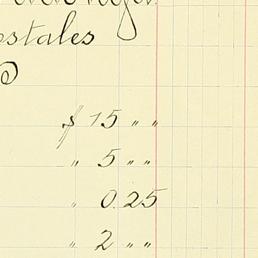 estales
$ 15 " "
" 5 " "
" 0.25
" 2 " "